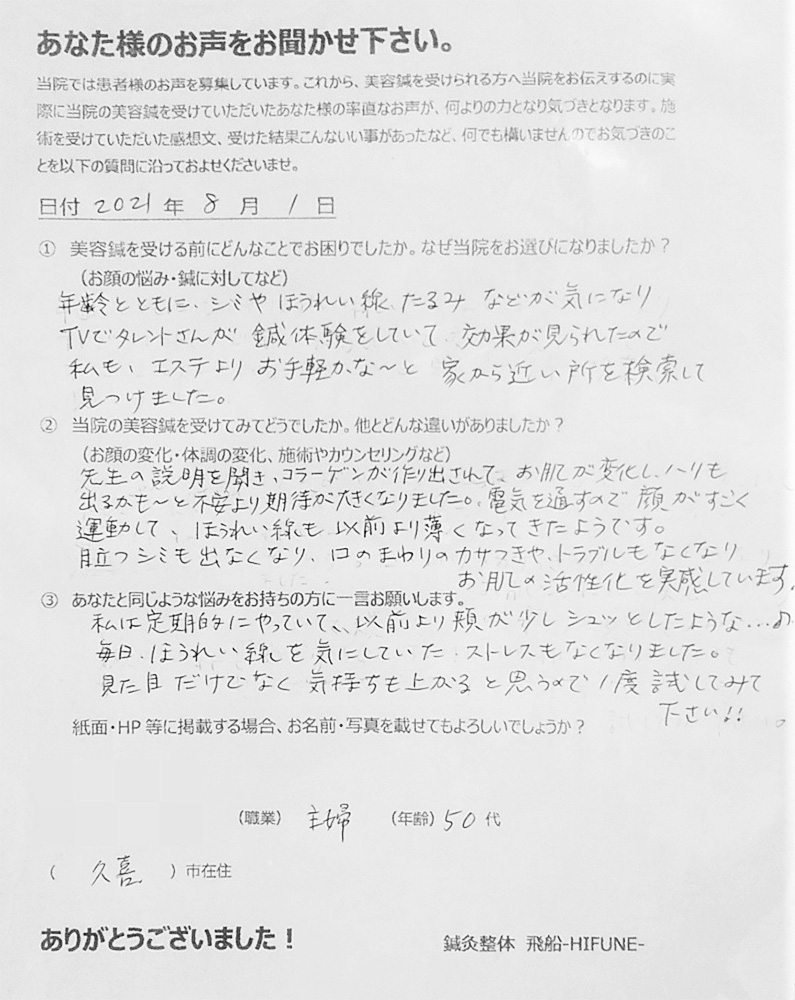 あなた様のお声をお聞かせ下さい。
当院では患者様のお声を募集しています。これから、美容鍼を受けられる方へ当院をお伝えするのに実
際に当院の美容鍼を受けていただいたあなた様の率直なお声が、何よりの力となり気づきとなります。施
術を受けていただいた感想文、受けた結果こんないい事があったなど、何でも構いませんのでお気づきのこ
とを以下の質問に沿っておよせくださいませ。
日付 2021 年 8 月 1 日
① 美容鍼を受ける前にどんなことでお困りでしたか。なぜ当院をお選びになりましたか？
（お顔の悩み・鍼に対してなど）
年齢とともに、シミや ほうれい線、たるみ などが気になり
TVでタレントさんが 鍼体験をしていて 効果が見られたので
私も、エステより お手軽かな〜と 家から近い所を検索して
見つけました。
② 当院の美容鍼を受けてみてどうでしたか。他とどんな違いがありましたか？
（お顔の変化・体調の変化、施術やカウンセリングなど）
先生の説明を聞き、コラーゲンが作り出されて、お肌が変化し、ハリも
出るかも〜と不安より期待が大きくなりました。電気を通すので顔がすごく
運動して、ほうれい線も以前より薄くなってきたようです。
目立つシミも出なくなり、口のまわりのカサつきや、トラブルもなくなり
お肌の活性化を実感しています。
③ あなたと同じような悩みをお持ちの方に一言お願いします。
私は定期的にやっていて、以前より頬が少しシュッとしたような…♪
毎日、ほうれい線を気にしていた ストレスもなくなりました。
見た目だけでなく 気持ちも上がると思うので1度試してみて
下さい!!。
紙面・HP 等に掲載する場合、お名前・写真を載せてもよろしいでしょうか？
（職業） 主婦 （年齢）50 代
（ 久喜 ）市在住
ありがとうございました！
鍼灸整体 飛船-HIFUNE-